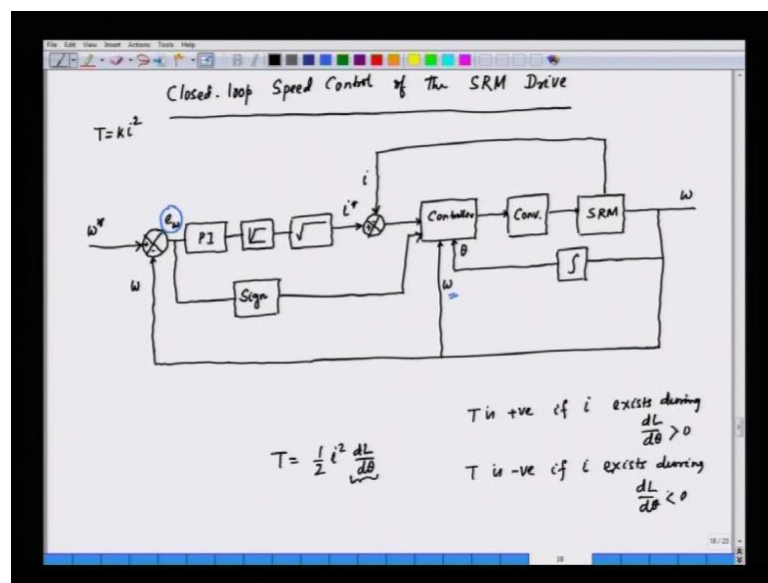 File Edit View Insert Actions Tools Help
B I
Closed-loop Speed Control of the SRM Drive
T=ki²
ω*
+
-
e_ω
PI
√
i*
i
Controller
Conv.
SRM
ω
θ
∫
ω
ω
Sign
T = 1/2 i² dL/dθ
T is +ve if i exists during
dL/dθ > 0
T is -ve if i exists during
dL/dθ < 0
18/23
18